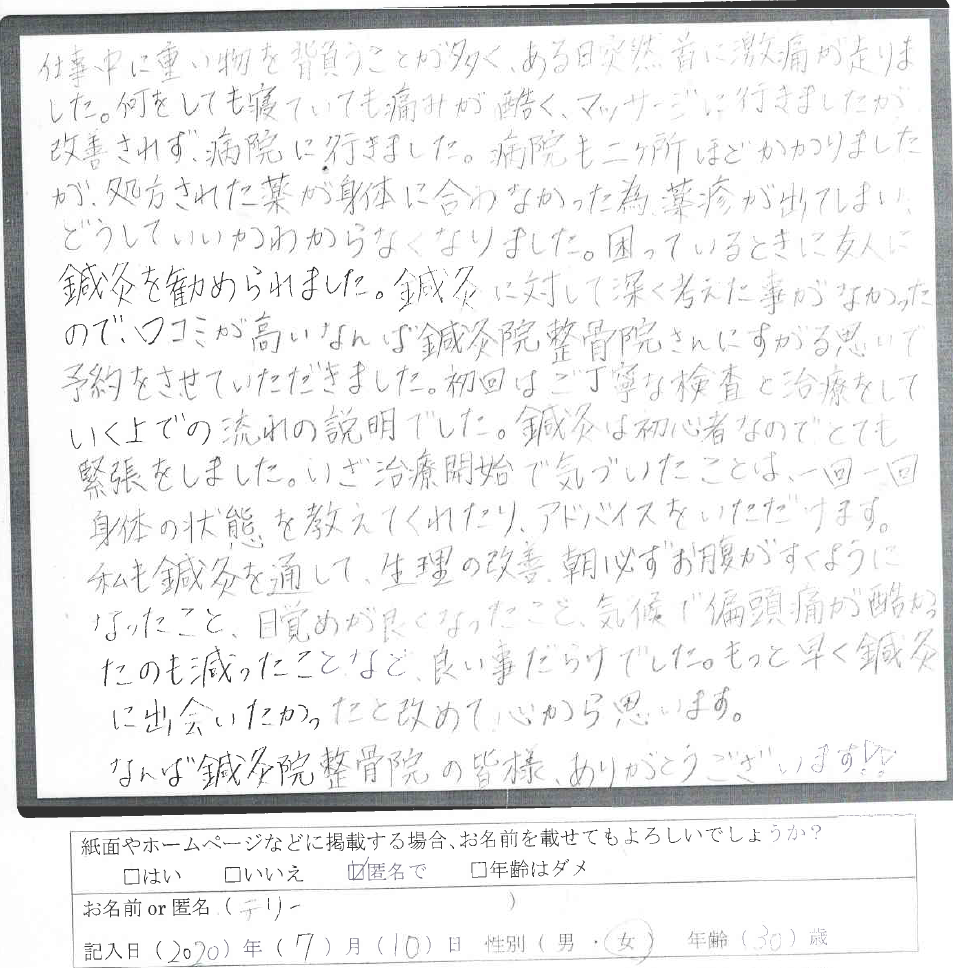 仕事中に重い物を背負うことが多く、ある日突然首に激痛が走りま
した。何をしても寝ていても痛みが酷く、マッサージに行きましたが
改善されず、病院に行きました。病院も二ヶ所ほどかかりました
が、処方された薬が身体に合わなかった為、薬疹が出てしまい、
どうしていいかわからなくなりました。困っているときに友人に
鍼灸を勧められました。鍼灸に対して深く考えた事がなかった
ので、口コミが高いなんば鍼灸院整骨院さんにすがる思いで
予約をさせていただきました。初回はご丁寧な検査と治療をして
いく上での流れの説明でした。鍼灸は初心者なのでとても
緊張をしました。いざ治療開始で気づいたことは、一回一回
身体の状態を教えてくれたり、アドバイスをいただけます。
私も鍼灸を通して、生理の改善、朝必ずお腹がすくように
なったこと、目覚めが良くなったこと、気候で偏頭痛が酷かっ
たのも減ったことなど、良い事だらけでした。もっと早く鍼灸
に出会いたかったと改めて心から思います。
なんば鍼灸院整骨院の皆様、ありがとうございます!!
紙面やホームページなどに掲載する場合、お名前を載せてもよろしいでしょうか？
□はい □いいえ ☑匿名で □年齢はダメ
お名前or匿名（テリー）
記入日（2020）年（7）月（10）日 性別（男・女） 年齢（30）歳